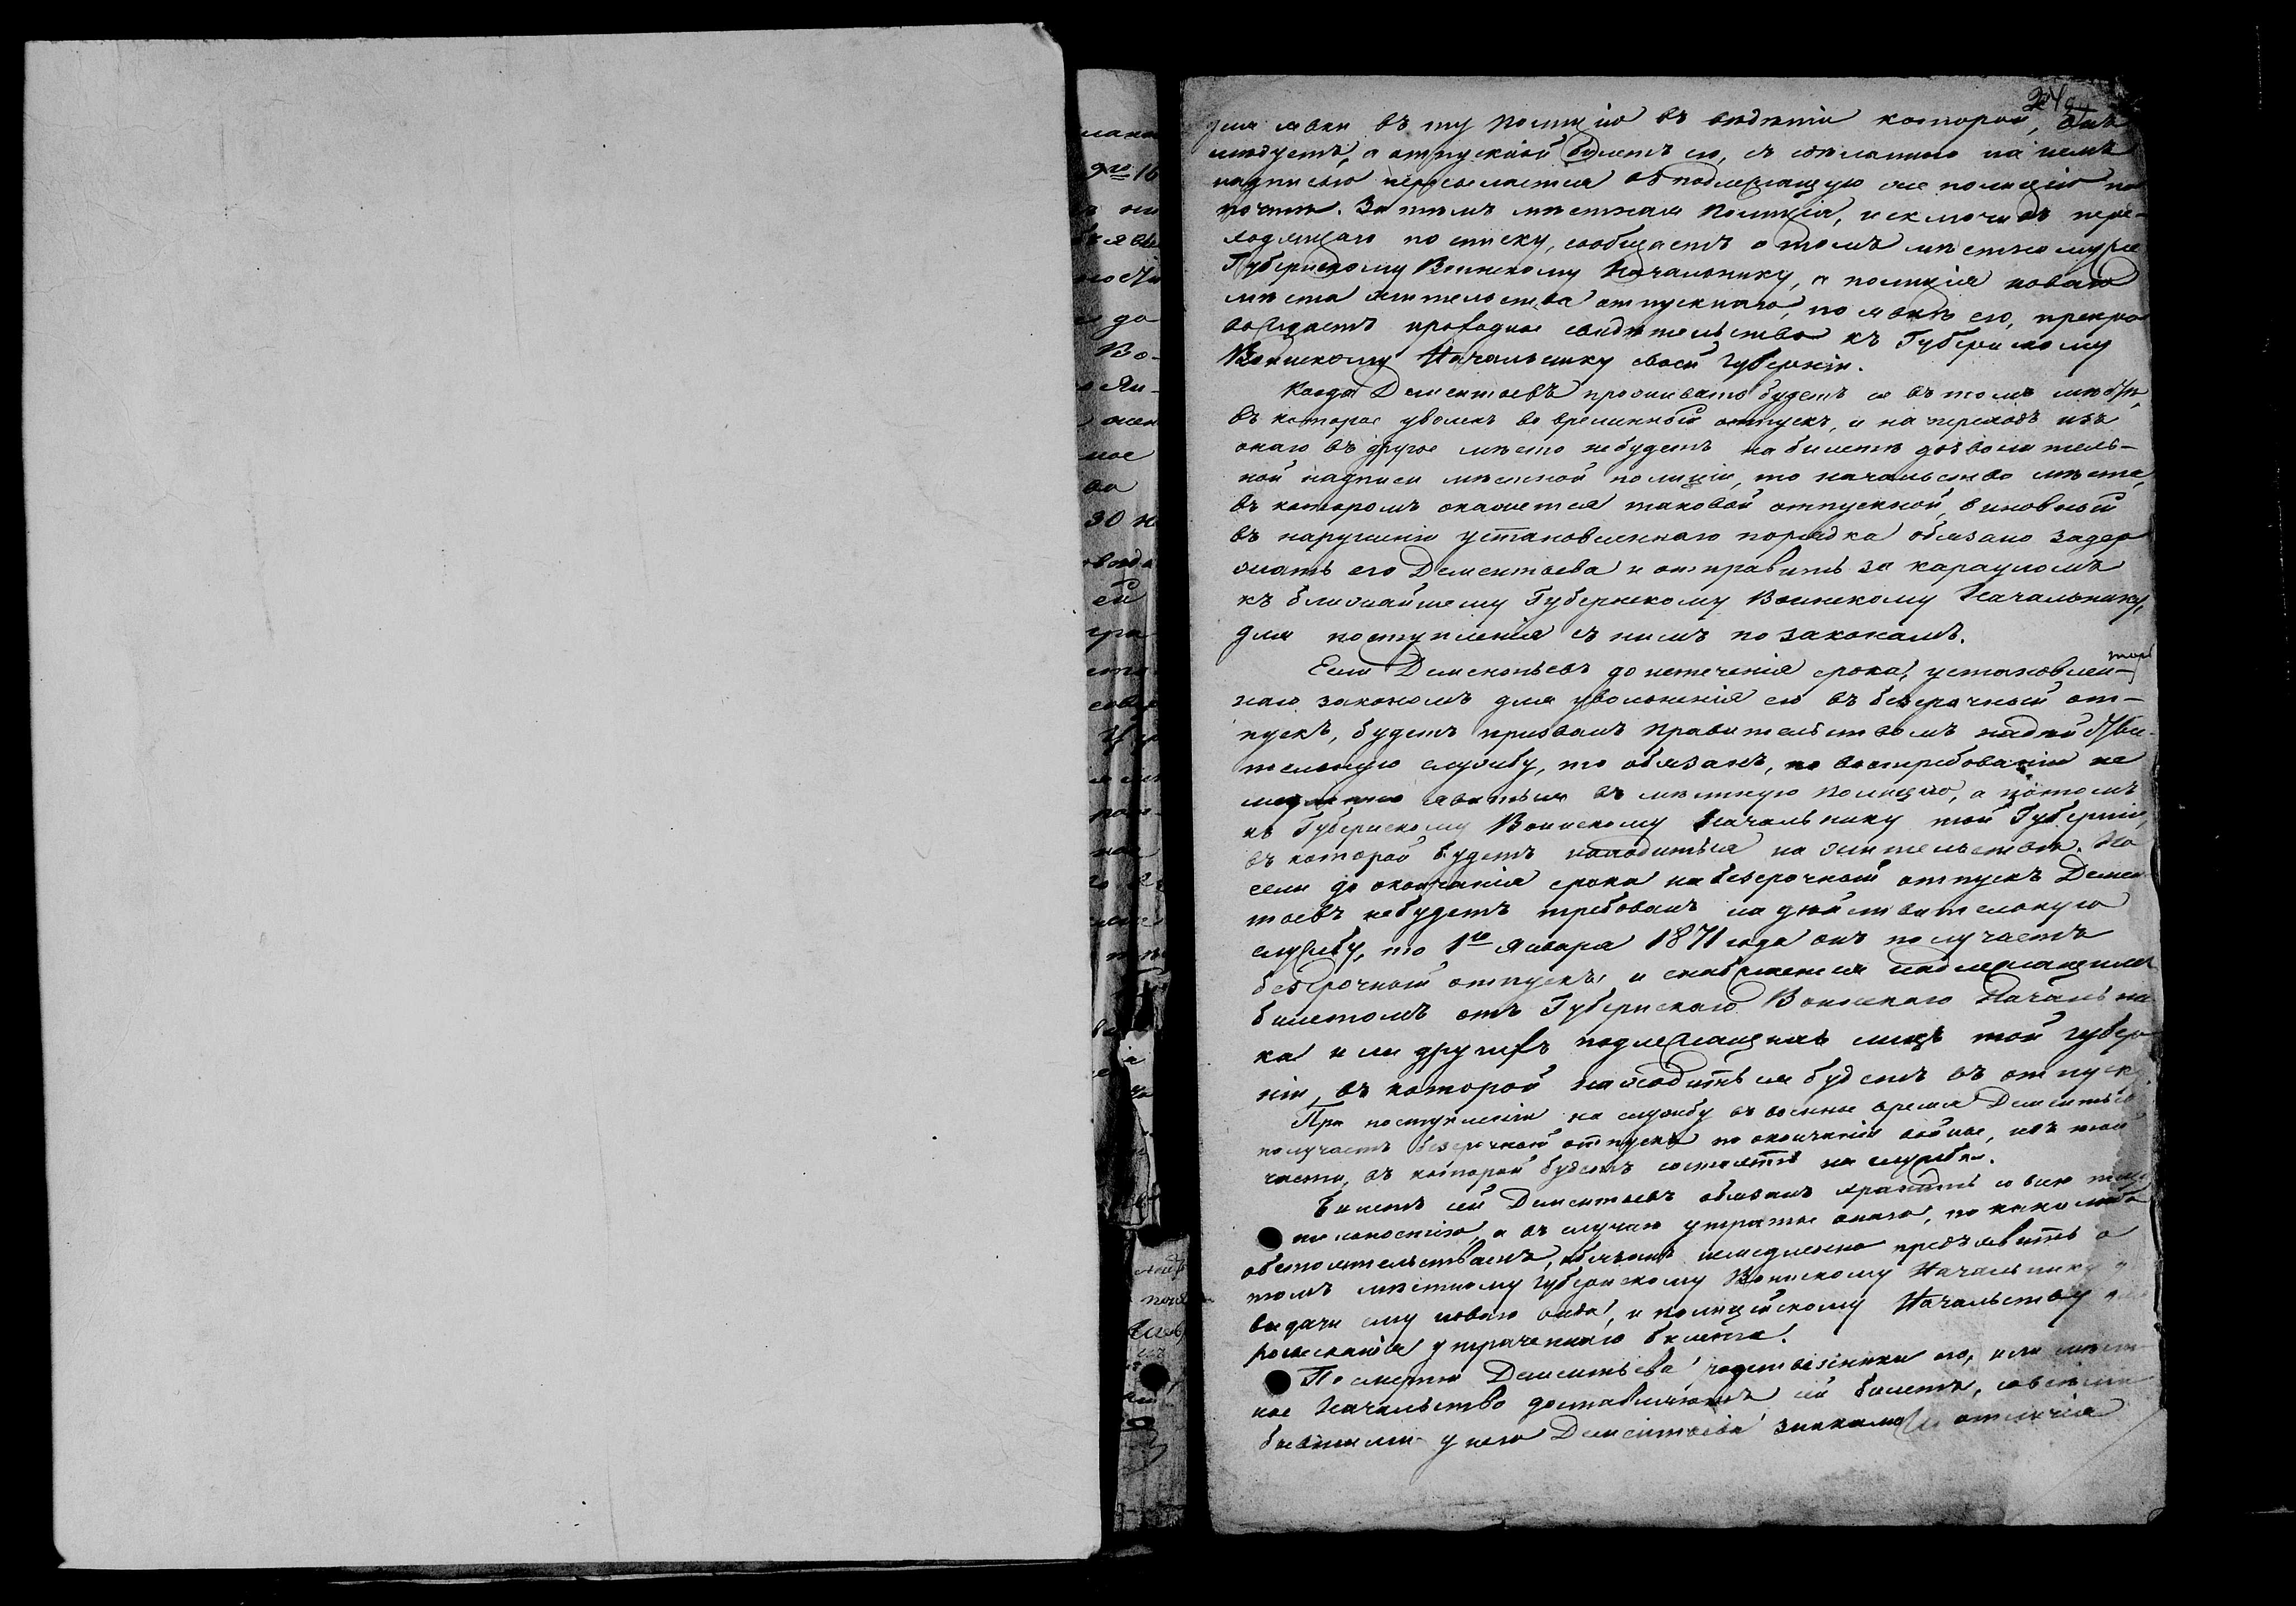 для явки въ ту Полицію въ вѣденіи которой, онъ
слѣдуетъ, а отпускной билетъ его, съ сдѣланною на немъ
надписью пересылается въ подлежащую же полицію по
почтѣ. За тѣмъ мѣстная Полиція, исключивъ пере-
ходящаго по списку, сообщаетъ о томъ мѣстному же
Губернскому Воинскому Начальнику, а полиція новаго
мѣста жительства отпускнаго, по явкѣ его, препро
вождаетъ проходное свидѣтельство къ Губернскому
Воинскому Начальнику своей Губерніи.
Когда Дементьевъ проживать будетъ не въ томъ мѣстѣ,
въ которое уволенъ во временный отпускъ, и на переходъ изъ
онаго въ другое мѣсто небудетъ на билетѣ дозволитель-
ной надписи мѣстной полиціи, то начальство мѣста,
въ которомъ окажется таковой отпускной, виновный
въ нарушеніи установленнаго порядка обязано задер
жать его Дементьева и отправить за карауломъ
къ ближайшему Губернскому Воинскому Начальнику,
для поступленія съ нимъ по законамъ.
Если Дементьевъ до истеченія срока, установлен-
наго закономъ для увольненія его въ безсрочный от-
пускъ, будетъ призванъ Правительствомъ на дѣйстви-
тельную службу, то обязанъ, по востребованіи не
медленно явиться въ мѣстную Полицію, а потомъ
къ Губернскому Воинскому Начальнику той Губерніи,
въ которой будетъ находиться на жительствѣ. Но
если до окончанія срока на безсрочный отпускъ Демен
тьевъ небудетъ требованъ на дѣйствительную
службу, то 1го Января 1871 года онъ получаетъ
безсрочный отпускъ и снабжается надлежащимъ
билетомъ отъ Губернскаго Воинскаго Начальни
ка или другихъ подлежащихъ лицъ той губер
ніи, въ которой находиться будетъ въ отпуску.
При поступленіи на службу въ военное время Дементьевъ
получаетъ безсрочный отпускъ по окончаніи войны, изъ той
части, въ которой будетъ состоять на службѣ.
Билетъ сей Дементьевъ обязанъ хранить со всею тща
тельностію, а въ случаѣ утраты онаго, по какимъ либо
обстоятельствамъ, обязанъ немедленно предъявить о
томъ мѣстному Губернскому Воинскому Начальнику
выдачи ему новаго вида, и полицейскому Начальству для
розысканія утраченнаго билета.
По смерти Дементьева родственники его, или мѣст
ное Начальство доставляютъ сей билетъ, со всѣми
бывшими у него Дементьева знаками отличія